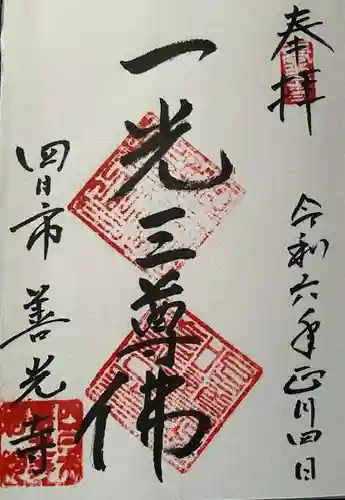 奉拝
令和六年正月四日
一光三尊佛
四日市 善光寺